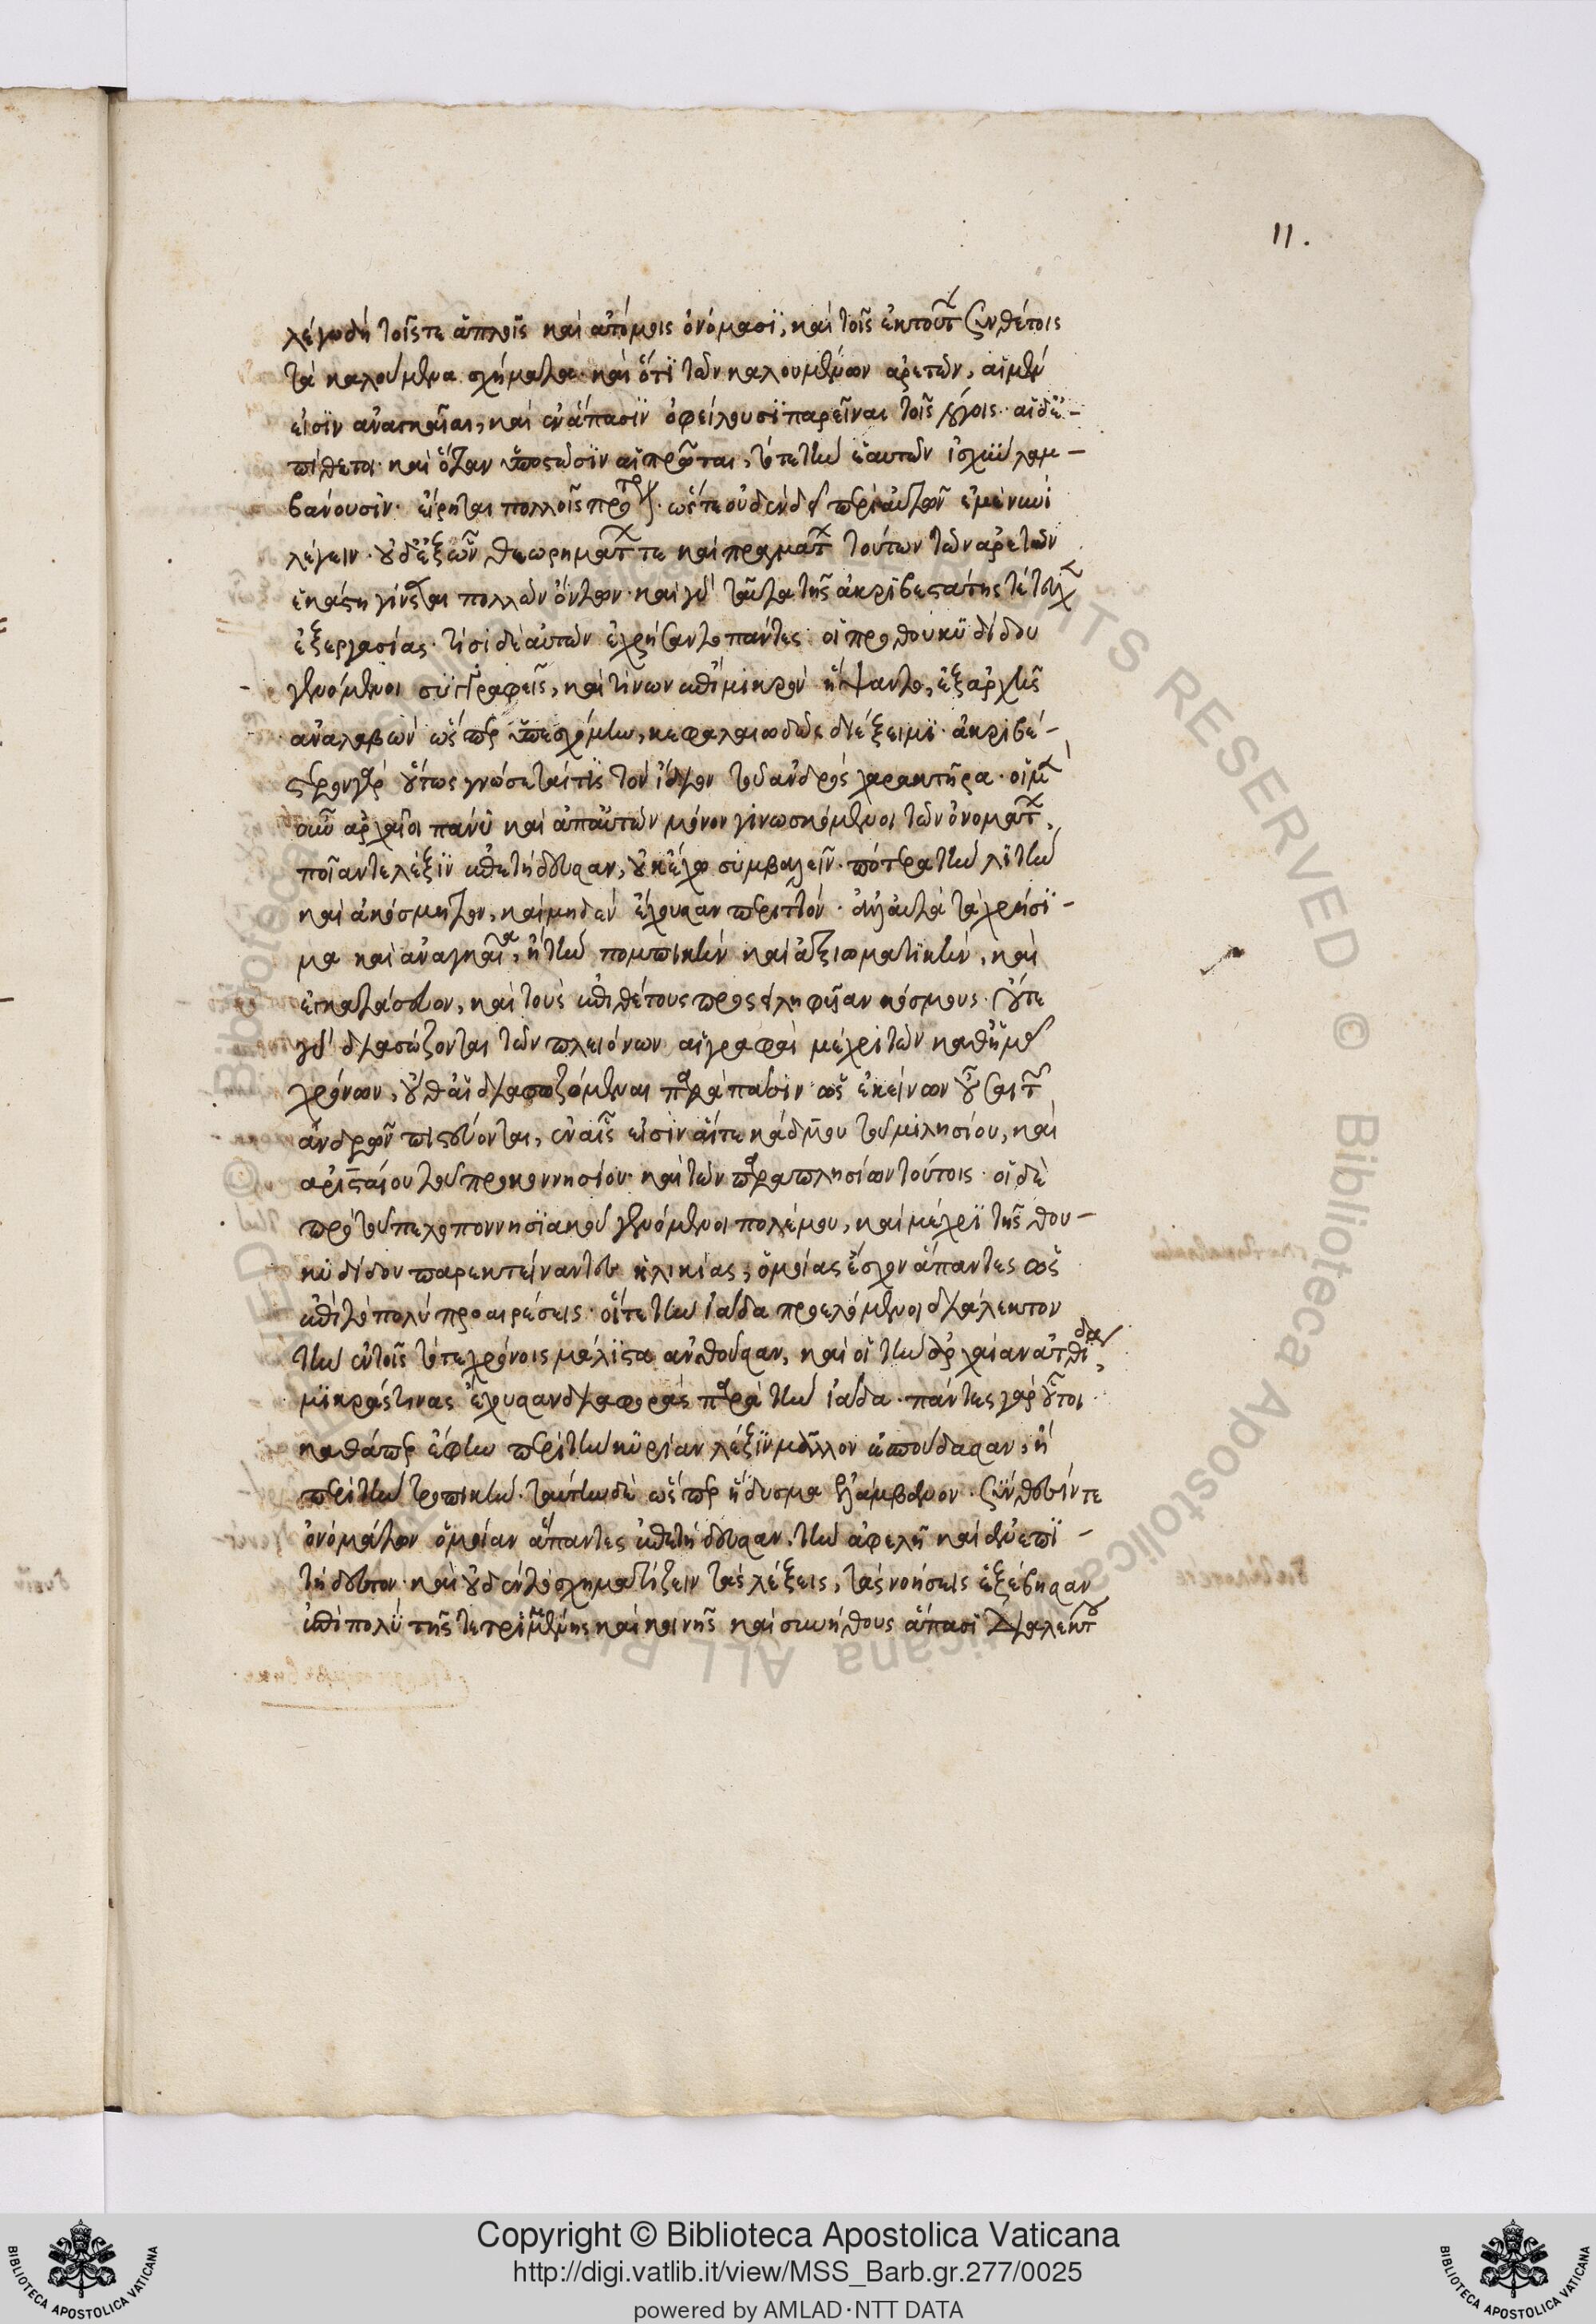 11.
λέγω δὴ τοῖς τε ἁπλοῖς καὶ ἀτόμοις ὀνόμασϊ, καὶ τοῖς ἐκ τούτ συνθέτοις
τὰ καλούμενα σχήματα· καὶ ὅτϊ τῶν καλουμένων ἀρετῶν, αἱ μὲν
εἰσϊν ἀναγκαῖαι, καὶ ἐν ἅπασϊν ὀφείλουσϊ παρεῖναι τοῖς λόγοις· αἱ δὲ ἐ-
πίθετοι· καὶ ὅταν ὑποστῶσϊν αἱ πρῶται, τότε τὴν ἑαυτῶν ἰσχὺν λαμ-
βάνουσϊν· εἴρηται πολλοῖς πρότερ· ὥστε οὐδὲν δεῖ περὶ αὐτῶν ἐμὲ νυνὶ
λέγειν· οὐδ' ἐξ ὧν θεωρημάτ τε καὶ πραγμάτ τούτων τῶν ἀρετῶν
ἑκάστη γίνεται πολλῶν ὄντων· καὶ γὰρ ταῦτα τῆς ἀκριβεστάτης τέτυχ
ἐξεργασίας· τίσϊ δὲ αὐτῶν ἐχρήσαντο πάντες οἱ πρὸ θουκϋδίδου
γενόμενοι συγγραφεῖς, καὶ τίνων ἐπὶ μικρὸν ἥψαντο, ἐξ ἀρχῆς
ἀναλαβὼν ὥσπερ ὑπεσχόμην, κεφαλαιωδῶς διέξειμϊ· ἀκριβέ-
στερον γὰρ οὕτως γνώσεταί τϊς τὸν ἴδιον τοῦ ἀνδρὸς χαρακτῆρα· οἱ μ
οὖν ἀρχαῖοι πάνυ καὶ ἀπ' αὐτῶν μόνον γινωσκόμενοι τῶν ὀνομάτ,
ποῖαν τε λέξϊν ἐπετήδευσαν, οὐκ ἔχω συμβαλεῖν· πότερα τὴν λιτὴν
καὶ ἀκόσμητον, καὶ μηδὲν ἔχουσαν περιττὸν· ἀλλ' αὐτὰ τὰ χρήσϊ-
μα καὶ ἀναγκαῖα, ἢ τὴν πομπικὴν καὶ ἀξιωματϊκὴν, καὶ
ἐγκατάσκευον, καὶ τοὺς ἐπιθέτους προσειληφεῖαν κόσμους· οὔτε
γὰρ διασώζονται τῶν πλειόνων αἱ γραφαὶ μέχρι τῶν καθ' ἡμ
χρόνων, οὔθ' αἱ διασωζόμεναι παρὰ πᾶσϊν ὡς ἐκείνων οὖσαι τ
ἀνδρῶν πιστεύονται, ἐν αἷς εἰσὶν αἵ τε κάδμου τοῦ μϊλησίου, καὶ
ἀρισταίου τοῦ προκοννησίου· καὶ τῶν παραπλησίων τούτοις· οἱ δὲ
πρὸ τοῦ πελοποννησϊακοῦ γενόμενοι πολέμου, καὶ μέχρϊ τῆς θου-
κϋδίδου παρεκτείναντες ἡλικίας, ὁμοίας ἔσχον ἅπαντες ὡς
ἐπὶ τὸ πολὺ προαιρέσεις· οἵ τε τὴν ἰάδα προελόμενοι διάλεκτον
τὴν ἐν τοῖς τότε χρόνοις μάλϊστα ἀνθοῦσαν, καὶ οἱ τὴν ἀρχαίαν ἀτθίδα,
μϊκράς τινας ἔχουσαν διαφορὰς παρὰ τὴν ἰάδα· πάντες γὰρ οὗτοι
καθάπερ ἔφην περὶ τὴν κϋρίαν λέξϊν μᾶλλον ἐσπούδασαν, ἢ
περὶ τὴν τροπικὴν· ταύτην δὲ ὥσπερ ἥδυσμα ἐλάμβανον· σύνθεσϊν τε
ὀνομάτων ὁμοίαν ἅπαντες ἐπετήδευσαν, τὴν ἀφελῆ καὶ ἀνεπϊ-
τήδευτον· καὶ οὐδ' ἐν τῷ σχηματίζειν τὰς λέξεις, τὰς νοήσεις ἐξέβησαν
ἐπὶ πολὺ τῆς τετριμμένης καὶ κοινῆς καὶ συνήθους ἅπασϊ διαλέκτ
Copyright © Biblioteca Apostolica Vaticana
http://digi.vatlib.it/view/MSS_Barb.gr.277/0025
powered by AMLAD·NTT DATA